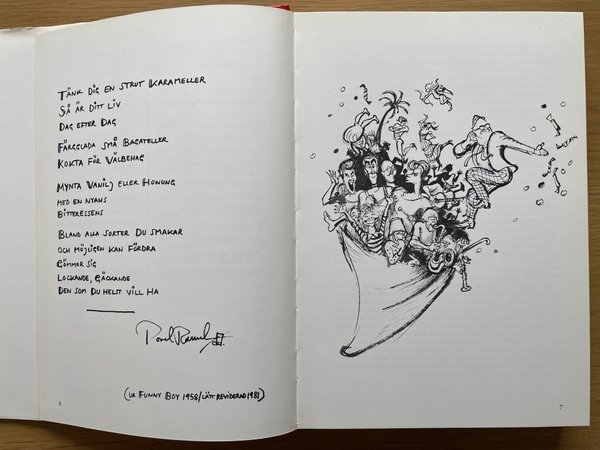 TÄNK DIG EN STRUT KARAMELLER
SÅ ÄR DITT LIV
DAG EFTER DAG
FÄRGGLADA SMÅ BAGATELLER
KOKTA FÖR VÄLBEHAG
MYNTA VANILJ ELLER HONUNG
MED EN NYANS
BITTERESSENS
BLAND ALLA SORTER DU SMAKAR
OCH MÖJLIGEN KAN FÖRDRA
GÖMMER SIG
LOCKANDE, GÄCKANDE
DEN SOM DU HELST VILL HA
Povel Ramel
(UR FUNNY BOY 1958/LÄTT REVIDERAD 1981)
6
7